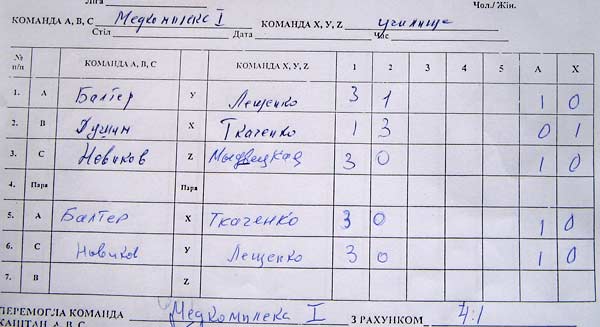 Ліга Чол./ Жін.
КОМАНДА А, В, С Медкомплекс I КОМАНДА X, У, Z училище
Стіл Дата Час
№ п/п КОМАНДА А, В, С КОМАНДА X, У, Z 1 2 3 4 5 А X
1. А Балтер У Лещенко 3 1 1 0
2. В Душин X Ткаченко 1 3 0 1
3. С Новиков Z 3 0 1 0
4. Пара Пара
5. А Балтер X Ткаченко 3 0 1 0
6. С Новиков У Лещенко 3 0 1 0
7. В Z
ПЕРЕМОГЛА КОМАНДА Медкомплекс I З РАХУНКОМ 4:1
КАПІТАН, А, В, С